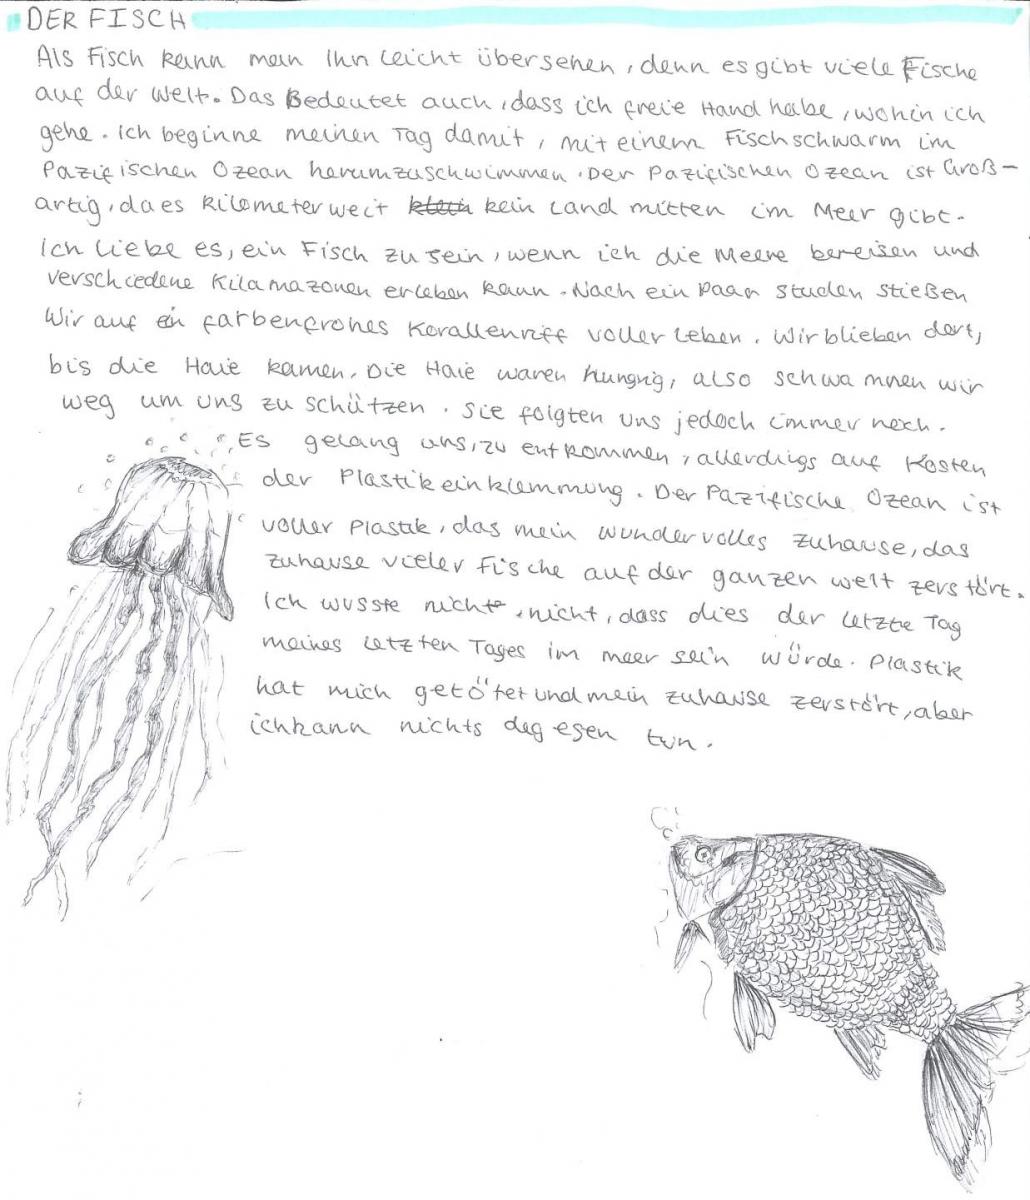 DER FISCH
Als Fisch kann man Ihn leicht übersehen, denn es gibt viele Fische
auf der Welt. Das Bedeutet auch, dass ich freie Hand habe, wohin ich
gehe. Ich beginne meinen Tag damit, mit einem Fischschwarm im
Pazifischen Ozean herumzuschwimmen. Der Pazifischen Ozean ist Groß-
artig, da es Kilometer weit klein kein Land mitten im Meer gibt.
Ich liebe es, ein Fisch zu sein, wenn ich die Meere bereisen und
verschiedene Kilamazonen erleben kann. Nach ein paar studen stießen
Wir auf ein farbenfrohes Korallenriff voller leben. Wir blieben dort,
bis die Haie kamen. Die Haie waren hungrig, also schwammen wir
weg um uns zu schützen. Sie folgten uns jedoch immer noch.
Es gelang uns, zu entkommen, allerdigs auf Kosten
der Plastikeinklemmung. Der Pazifische Ozean ist
voller Plastik, das mein wundervolles zuhause, das
zuhause vieler Fische auf der ganzen welt zerstört.
Ich wusste nicht, nicht, dass dies der letzte Tag
meines letzten Tages im meer sein würde. Plastik
hat mich getötet und mein zuhause zerstört, aber
ich kann nichts degegen tun.